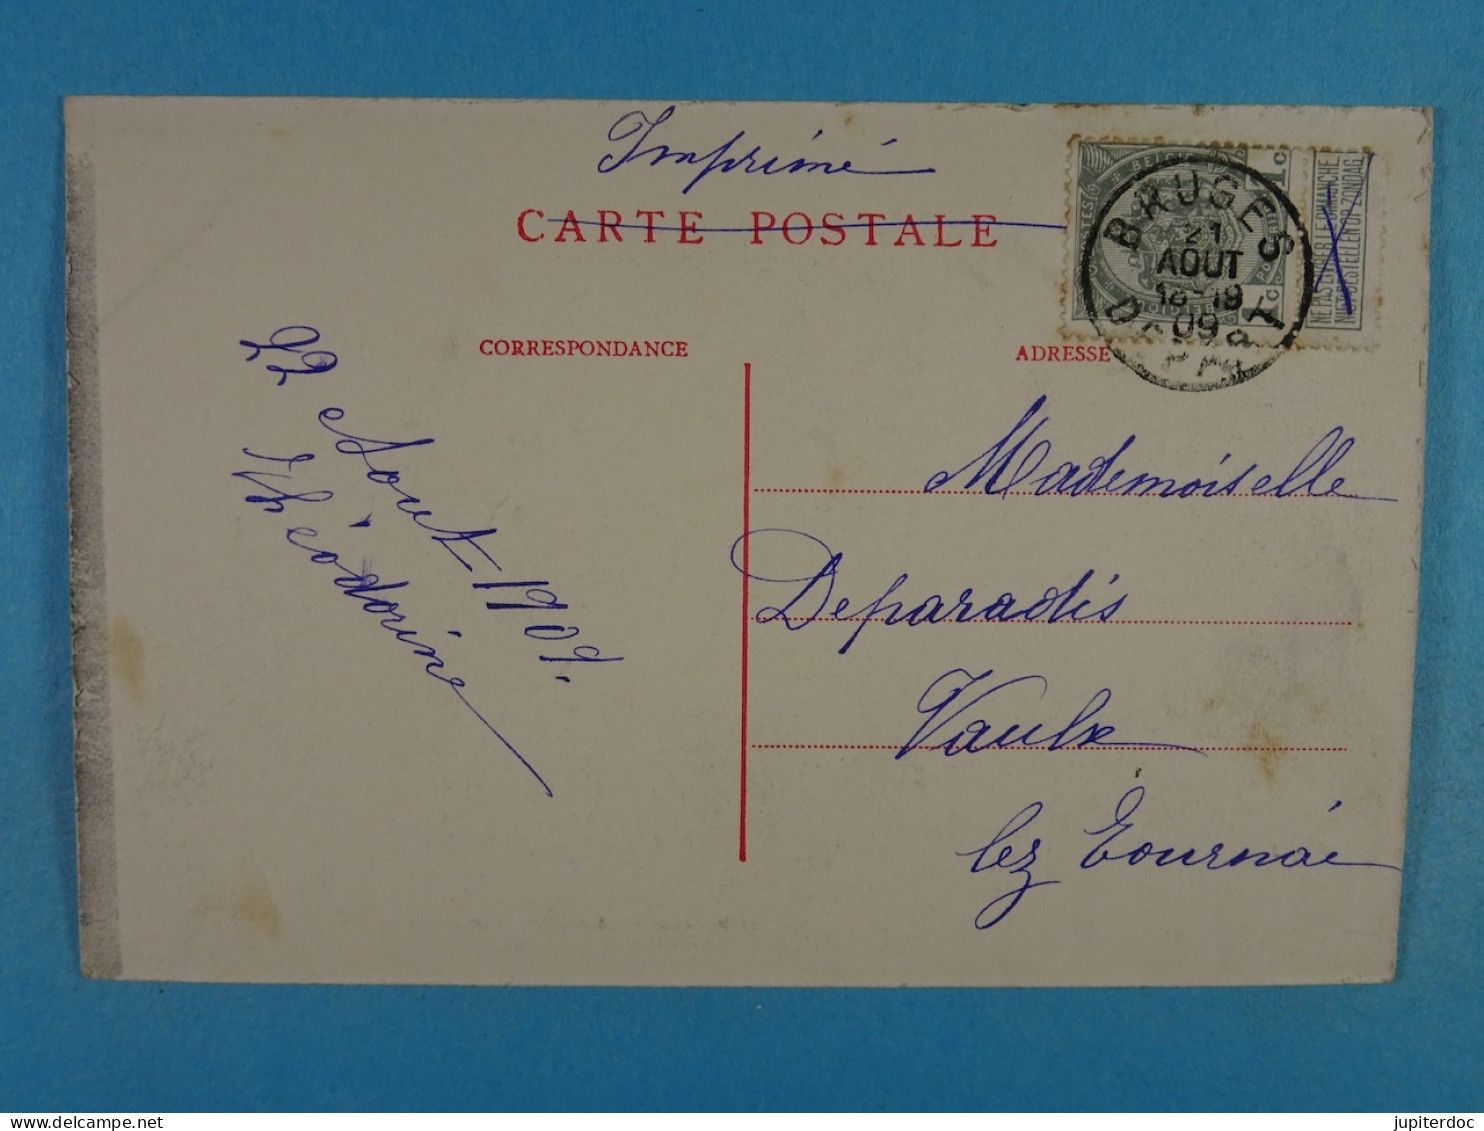 Imprimé
CARTE POSTALE
BRUGES
21
AOUT
18-19
09
DÉPART
1c
1c
NE PAS LIVRER LE DIMANCHE
NIET BESTELLEN OP ZONDAG
CORRESPONDANCE
ADRESSE
22 Aout 1909.
Théodorine
Mademoiselle
Deparadis
Vaulx
lez Tournai
jupiterdoc
delcampe.net